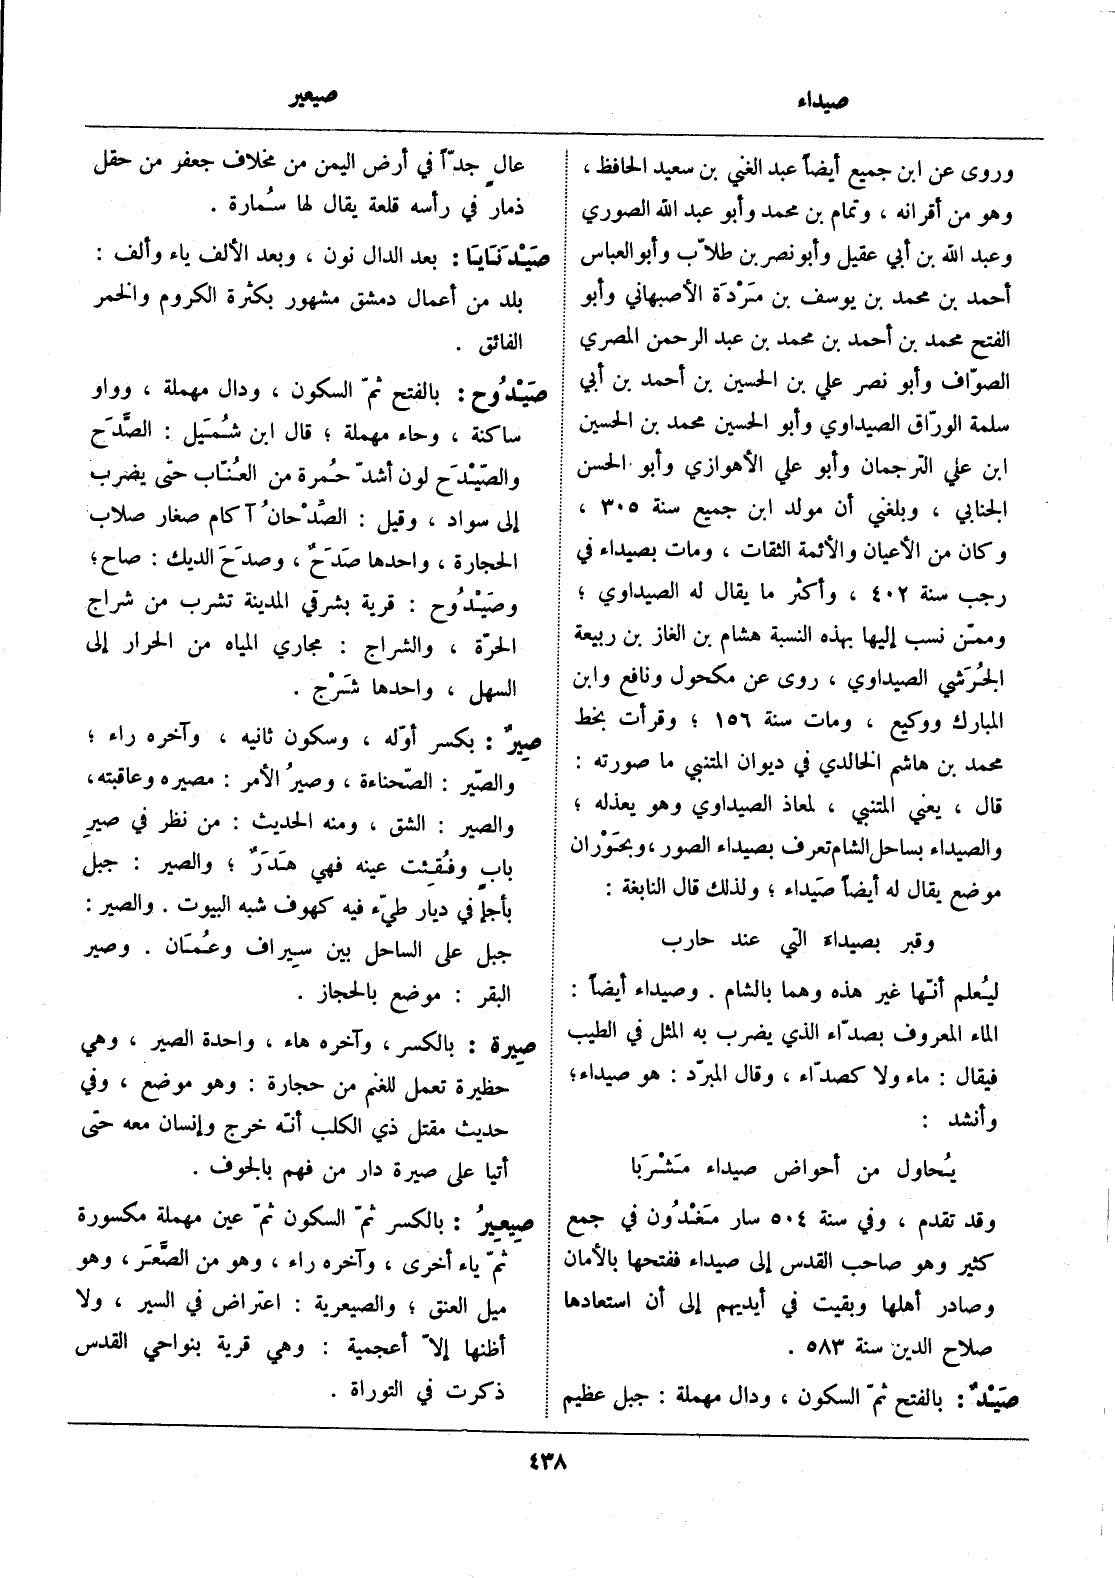 صيداء
صيعير
وروى عن ابن جميع أيضاً عبد الغني بن سعيد الحافظ ،
وهو من أقرانه ، وتمام بن محمد وأبو عبد الله الصوري
وعبد الله بن أبي عقيل وأبو نصر بن طلاّب وأبو العباس
أحمد بن محمد بن يوسف بن مَرْدَة الأصبهاني وأبو
الفتح محمد بن أحمد بن محمد بن عبد الرحمن المصري
الصوّاف وأبو نصر علي بن الحسين بن أحمد بن أبي
سلمة الورّاق الصيداوي وأبو الحسين محمد بن الحسين
ابن علي الترجمان وأبو علي الأهوازي وأبو الحسن
الجنابي ، وبلغني أن مولد ابن جميع سنة ٣٠٥ ،
وكان من الأعيان والأئمة الثقات ، ومات بصيداء في
رجب سنة ٤٠٢ ، وأكثر ما يقال له الصيداوي ؛
وممّن نسب إليها بهذه النسبة هشام بن الغاز بن ربيعة
الجُرَشي الصيداوي ، روى عن مكحول ونافع وابن
المبارك ووكيع ، ومات سنة ١٥٦ ؛ وقرأت بخط
محمد بن هاشم الخالدي في ديوان المتنبي ما صورته :
قال ، يعني المتنبي ، لمعاذ الصيداوي وهو يعذله ؛
والصيداء بساحل الشام تعرف بصيداء الصور ، وبحَوْران
موضع يقال له أيضاً صَيداء ؛ ولذلك قال النابغة :
وقبر بصيداء التي عند حارب
ليُعلم أنّها غير هذه وهما بالشام . وصيداء أيضاً :
الماء المعروف بصدّاء الذي يضرب به المثل في الطيب
فيقال : ماء ولا كصدّاء ، وقال المبرّد : هو صيداء ؛
وأنشد :
يُحاول من أحواض صيداء مَشْرَبا
وقد تقدم ، وفي سنة ٥٠٤ سار مَغْدُون في جمع
كثير وهو صاحب القدس إلى صيداء ففتحها بالأمان
وصادر أهلها وبقيت في أيديهم إلى أن استعادها
صلاح الدين سنة ٥٨٣ .
صَيْدٌ : بالفتح ثمّ السكون ، ودال مهملة : جبل عظيم
عالٍ جدّاً في أرض اليمن من مخلاف جعفر من حقل
ذمار في رأسه قلعة يقال لها سُمارة .
صَيْدَنَايَا : بعد الدال نون ، وبعد الألف ياء وألف :
بلد من أعمال دمشق مشهور بكثرة الكروم والخمر
الفائق .
صَيْدُوح : بالفتح ثمّ السكون ، ودال مهملة ، وواو
ساكنة ، وحاء مهملة ؛ قال ابن شُمَيل : الصَّدَح
والصّيْدَح لون أشدّ حُمرة من العُنّاب حتّى يضرب
إلى سواد ، وقيل : الصَّدْحانُ آكام صغار صلاب
الحجارة ، واحدها صَدَحٌ ، وصدَحَ الديك : صاح ؛
وصَيْدُوح : قرية بشرقي المدينة تشرب من شراج
الحرّة ، والشراج : مجاري المياه من الحرار إلى
السهل ، واحدها شَرْج .
صِيرٌ : بكسر أوّله ، وسكون ثانيه ، وآخره راء ؛
والصّير : الصّحناءة ، وصيرُ الأمر : مصيره وعاقبته ،
والصير : الشق ، ومنه الحديث : من نظر في صيرِ
بابٍ وفُقِئت عينه فهي هَدَرٌ ؛ والصير : جبل
بأجإ في ديار طيّء فيه كهوف شبه البيوت . والصير :
جبل على الساحل بين سِيراف وعُمَان . وصير
البقر : موضع بالحجاز .
صِيرة : بالكسر ، وآخره هاء ، واحدة الصير ، وهي
حظيرة تعمل للغنم من حجارة : وهو موضع ، وفي
حديث مقتل ذي الكلب أنّه خرج وإنسان معه حتّى
أتيا على صيرة دار من فهم بالجوف .
صِيعِيرُ : بالكسر ثمّ السكون ثمّ عين مهملة مكسورة
ثمّ ياء أخرى ، وآخره راء ، وهو من الصَّعَر ، وهو
ميل العنق ؛ والصيعرية : اعتراض في السير ، ولا
أظنها إلاّ أعجمية : وهي قرية بنواحي القدس
ذكرت في التوراة .
٤٣٨